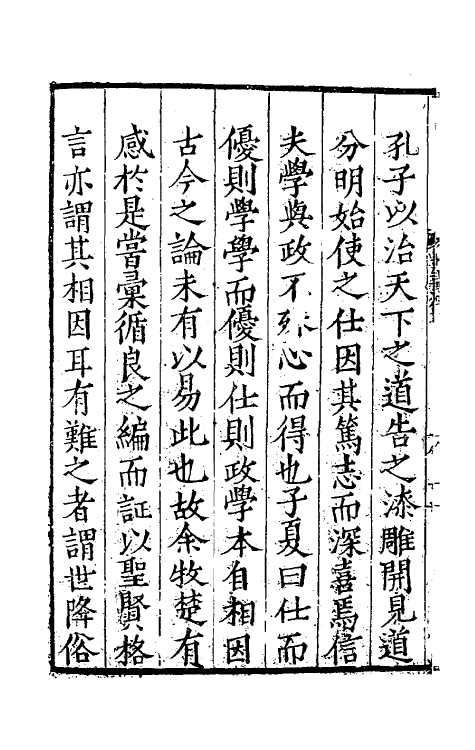 孔子以治天下之道告之漆雕開見道
分明始使之仕因其篤志而深喜焉信
夫學與政不殊心而得也子夏曰仕而
優則學學而優則仕則政學本自相因
古今之論未有以易此也故余牧楚有
感於是嘗彙循良之編而証以聖賢格
言亦謂其相因耳有難之者謂世降俗